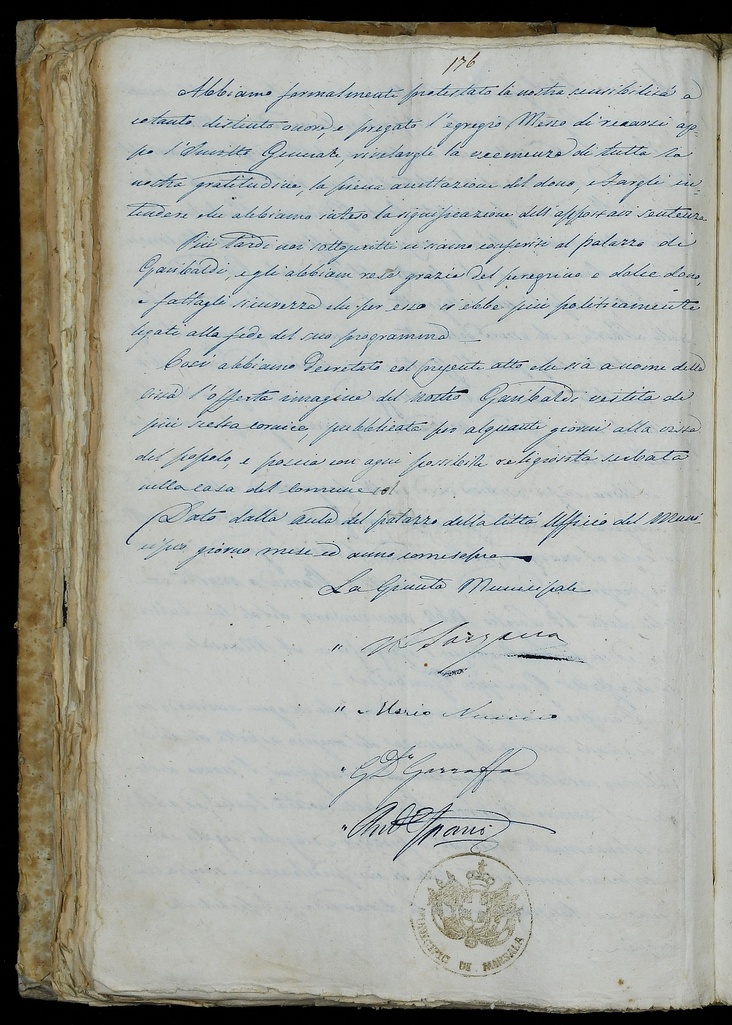 176
Abbiamo formalmente protestato la nostra sensibilità a
cotanto distinto onore, e pregato l'egregio Messo di recarsi ap-
po l'Invitto Generale, rivelargli la veemenza di tutta la
nostra gratitudine, la piena accettazione del dono, e fargli in-
tendere che abbiamo inteso la significazione dell'apposzavi sentenze
Più tardi noi sottoscritti ci siamo conferiti al palazzo di
Garibaldi, e gli abbiam resa grazie del peregrino e dolce dono,
e fattagli sicurezza che per esso ci ebbe più politicamente
legati alla fede del suo programma
Così abbiamo decretato col presente atto che sia a nome della
Città l'offerta imagine del nostro Garibaldi vestita di
più scelta cornice, pubblicata per alquanti giorni alla vista
del popolo, e poscia con ogni possibile religiosità serbata
nella casa del Comune
Dato dalla aula del palazzo della Città Ufficio del Muni-
cipio, giorno mese ed anno come sopra
La Giunta Municipale
" Sarzana
" Mario Nuccio
" G. D.r Garraffa
" Ant.o Spanò
MUNICIPIO DI MARSALA